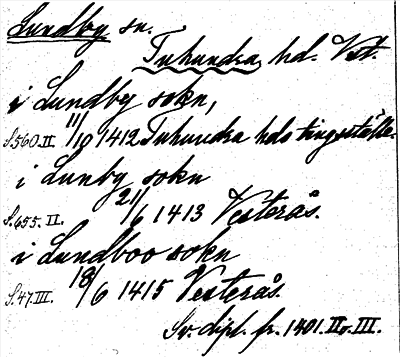 Lundby sn.
Tuhundra hd. Vst.
i Lundby sokn,
S.560.II. 11/10 1412 Tuhundra hds tingsställe.
i Lunby sokn
S.655. II. 21/6 1413 Vesterås.
i Lundboo sokn
S.47.III. 18/6 1415 Vesterås.
Sv. dipl. fr. 1401. II o. III.